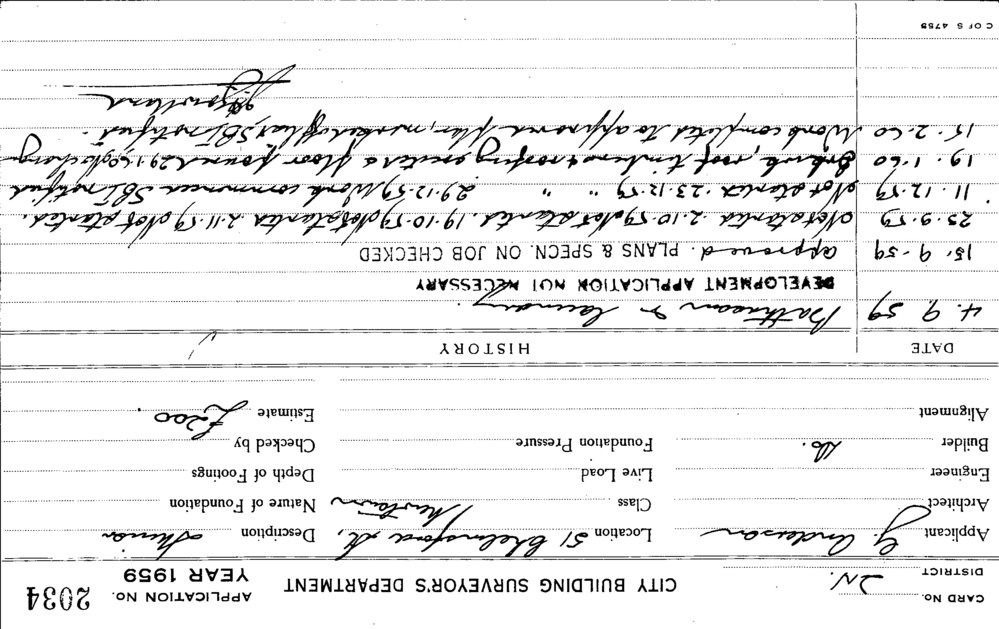 CARD NO. CITY BUILDING SURVEYOR'S DEPARTMENT APPLICATION NO. 2034
DISTRICT 2N. YEAR 1959
Applicant G. Anderson Location 51 Chelmsford St. Description Interior
Architect Class Newtown Nature of Foundation
Engineer Live Load Depth of Footings
Builder do. Foundation Pressure Checked by
Alignment Estimate £200.
DATE HISTORY
4. 9. 59 Bathroom & laundry.
DEVELOPMENT APPLICATION NOT NECESSARY
15. 9. 59 approved. PLANS & SPECN. ON JOB CHECKED
25.9.59 Not started 2.10.59 Not started. 19.10.59 Not started 2.11.59 Not started.
11.12.59 Not started. 23.12.59 " " 29.12.59 Work commenced SBI notified
19.1.60 Brkwk, roof timbers & roofing erected floor poured 29.1.60
15.2.60 Work completed to approved plan, marked off list, SBI notified.
C OF S 4755